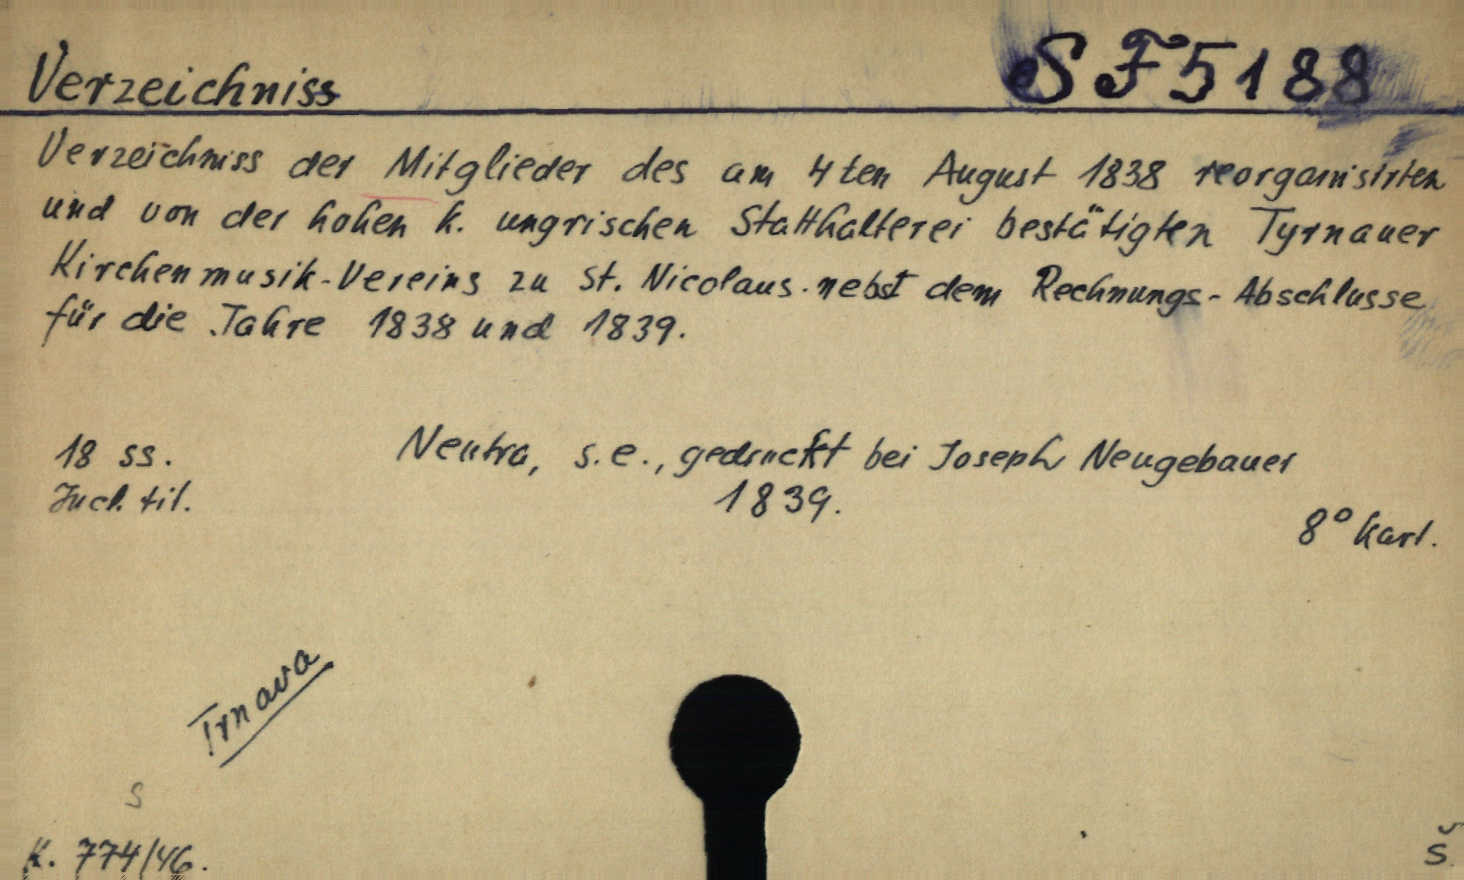 Verzeichniss SF5188
Verzeichniss der Mitglieder des am 4ten August 1838 reorganisirten
und von der hohen k. ungrischen Statthalterei bestätigten Tyrnauer
Kirchenmusik-Vereins zu St. Nicolaus nebst dem Rechnungs-Abschlusse
für die Jahre 1838 und 1839.
18 ss. Neutra, s.e., gedruckt bei Joseph Neugebauer
Incl. til. 1839.
8° kart.
Trnava
S
K. 774/46. Š.